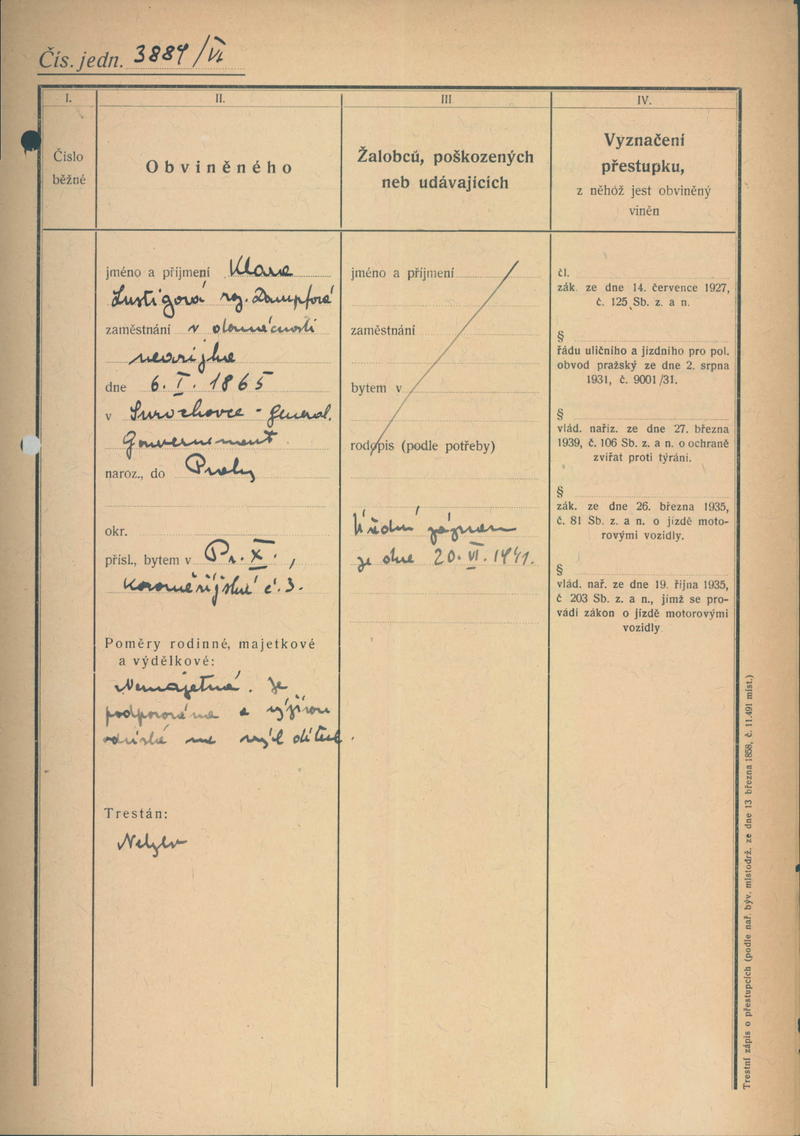 Čís. jedn. 3884/VI
I.
II.
III
IV.
Číslo
běžné
Obviněného
Žalobců, poškozených
neb udávajících
Vyznačení
přestupku,
z něhož jest obviněný
viněn
jméno a příjmení Klara
Lustigová roz. Dampfová
zaměstnání v domácnosti
dne 6. I. 1865
v General.
Gouvernement
naroz., do Prahy
okr.
přísl., bytem v Pr. XI.,
č. 3.
Poměry rodinné, majetkové
a výdělkové:
Nemajetná. Je
podporována a výživou
odkázána na dítek.
Trestán:
jméno a příjmení
zaměstnání
bytem v
rodopis (podle potřeby)
Úřední záznam
ze dne 20. VI. 1941.
čl.
zák. ze dne 14. července 1927,
č. 125 Sb. z. a n.
§
řádu uličního a jízdního pro pol.
obvod pražský ze dne 2. srpna
1931, č. 9001/31.
§
vlád. nařiz. ze dne 27. března
1939, č. 106 Sb. z. a n. o ochraně
zvířat proti týrání.
§
zák. ze dne 26. března 1935,
č. 81 Sb. z. a n. o jízdě moto-
rovými vozidly.
§
vlád. nař. ze dne 19. října 1935,
č 203 Sb. z. a n., jímž se pro-
vádí zákon o jízdě motorovými
vozidly.
Trestní zápis o přestupcích (podle nař. býv. místodrž. ze dne 13 března 1858, č. 11.491 míst.)